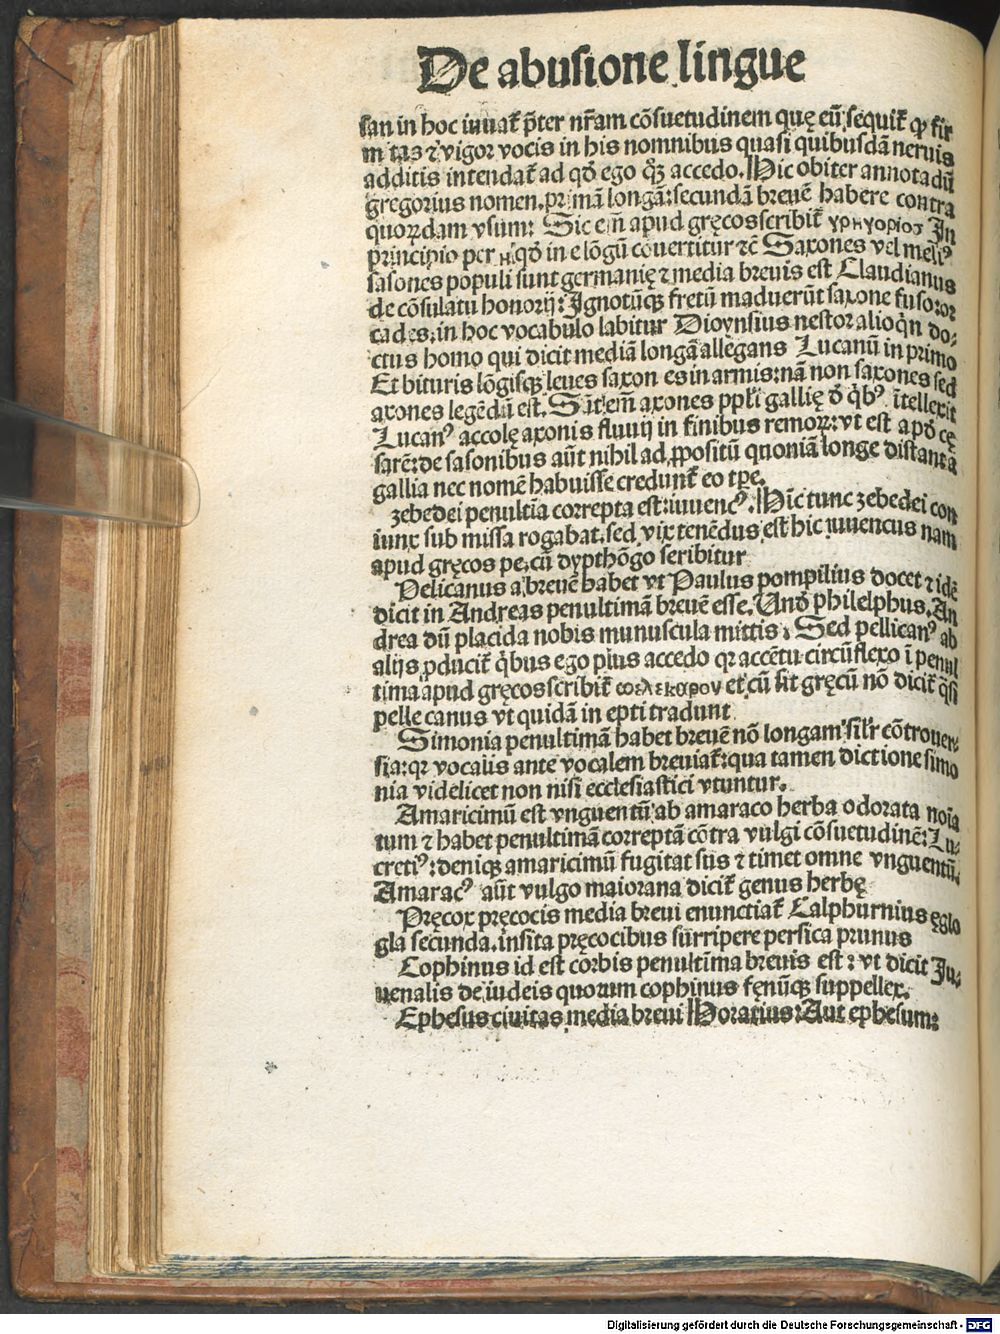 De abusione lingue
san in hoc iuuat̃ p̃ter nr̃am cõsuetudinem quę eũ sequit̃ ꝙ fir
m tas ⁊ vigor vocis in his nomnibus quasi quibusdã neruis
additis intendat̃ ad qď ego q̃ʒ accedo. Hic obiter annotadũ
gregorius nomen. primã longã: secundã breuẽ habere contra
quoꝝdam vsum: Sic em̃ apud gręcos scribit̃ γρηγοριοσ In
principio per η qď in e lõgũ couertitur ⁊c̃ Saxones vel meliꝰ
sasones populi sunt germanię ⁊ media breuis est Claudianus
de cõsulatu honorij: Ignotũqʒ fretũ maduerũt saxone fuso: or
cades. in hoc vocabulo labitur Dioynsius nestor alioqñ do-
ctus homo qui dicit mediã longã allegans Lucanũ in primo
Et bituris lõgisqʒ leues saxon es in armis: nã non saxones sed
axones legẽdũ est. Sũt em̃ axones ppl̃i gallię d̃ q̃bꝰ ĩtellexit
Lucanꝰ accolę axonis fluuij in finibus remoꝝ: vt est apď cę
sarẽ: de sasonibus aũt nihil ad ꝓpositũ quoniã longe distant a
gallia nec nomẽ habuisse credunt̃ eo tp̃e.
zebedei penultĩa correpta est: iuuencꝰ. Hic tunc zebedei con
iunx sub missa rogabat. sed vix tenẽdus est hic iuuencus nam
apud gręcos pe. cũ dypthõgo scribitur
Pelicanus a breuẽ habet vt Paulus pompilius docet ⁊ idẽ
dicit in Andreas penultimã breuẽ esse. Vnď philelphus. An
drea dũ placida nobis munuscula mittis: Sed pellicanꝰ ab
alijs ꝓducit̃ q̃bus ego plus accedo qꝛ accẽtu circũflexo ĩ penul
tima apud gręcos scribit̃ ωελεκαρον et cũ sit gręcũ nõ dicit̃ q̃si
pelle canus vt quidã in epti tradunt
Simonia penultimã habet breuẽ nõ longam sil̃r cõtrouer-
sia: qꝛ vocalis ante vocalem breuiat̃: qua tamen dictione simo
nia videlicet non nisi ecclesiastici vtuntur.
Amaricinũ est vnguentũ ab amaraco herba odorata noĩa
tum ⁊ habet penultimã correptã cõtra vulgi cõsuetudinẽ: Lu-
cretiꝰ: deniqʒ amaricinũ fugitat sus ⁊ timet omne vnguentũ.
Amaracꝰ aũt vulgo maiorana dicit̃ genus herbę
Pręcox pręcocis media breui enunctiat̃ Calphurnius ęglo
gla secunda. insita pręcocibus surripere persica prunus
Cophinus id est corbis penultĩma breuis est: vt dicit Ju-
uenalis de iudeis quorum cophinus fęnũqʒ suppellex.
Ephesus ciuitas media breui Horatius: Aut ephesum:
Digitalisierung gefördert durch die Deutsche Forschungsgemeinschaft - DFG